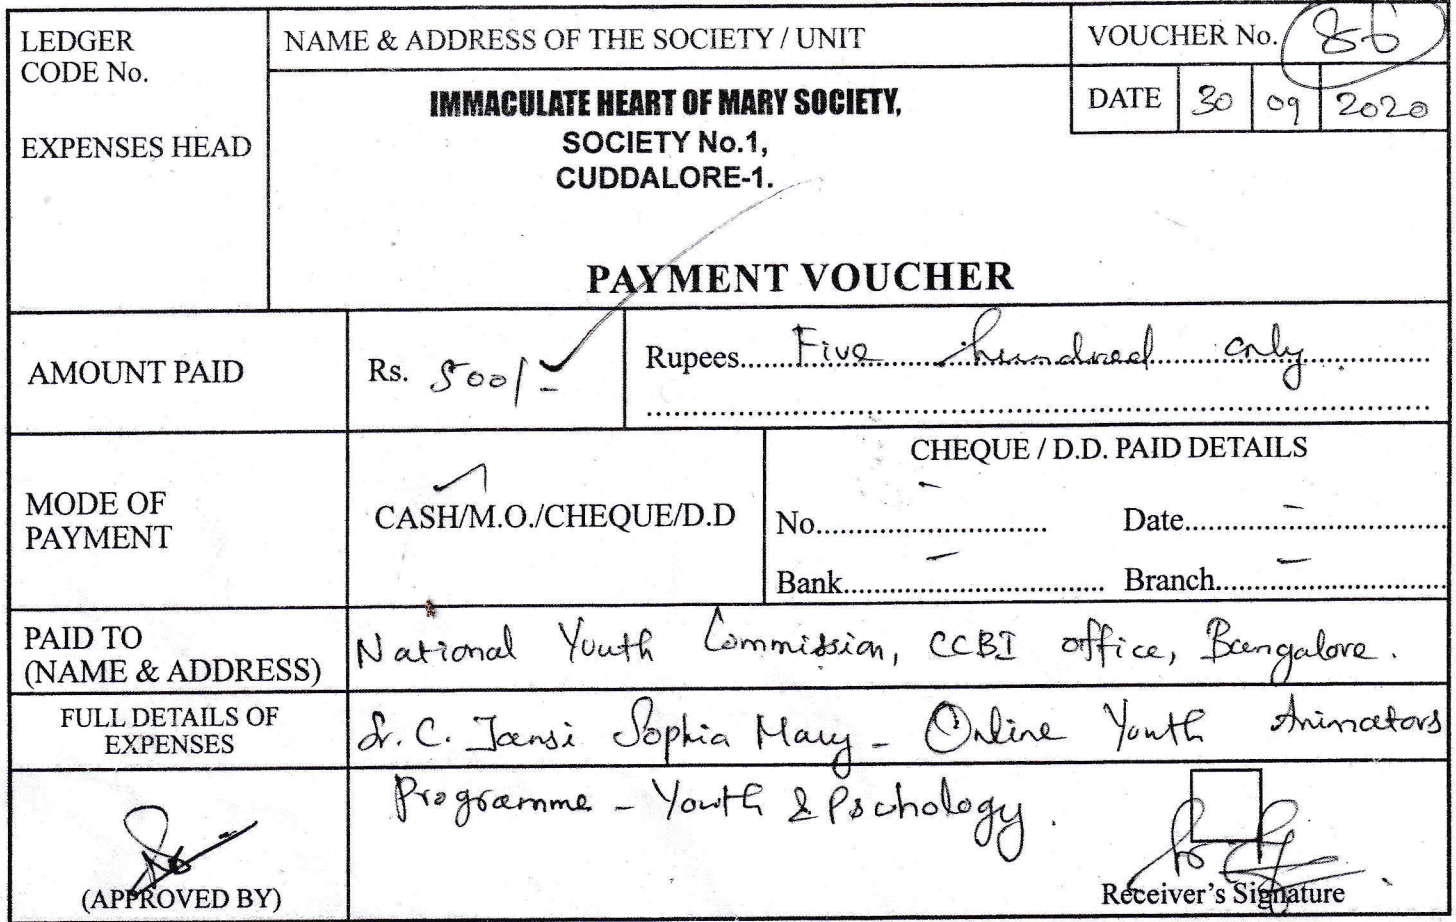 LEDGER
CODE No.
EXPENSES HEAD
NAME & ADDRESS OF THE SOCIETY / UNIT
IMMACULATE HEART OF MARY SOCIETY,
SOCIETY No.1,
CUDDALORE-1.
VOUCHER No. 86
DATE 30 09 2020
PAYMENT VOUCHER
AMOUNT PAID
Rs. 500/-
Rupees....Five hundred only....
MODE OF
PAYMENT
CASH/M.O./CHEQUE/D.D
CHEQUE / D.D. PAID DETAILS
No.... - Date.... -
Bank.... - Branch.... -
PAID TO
(NAME & ADDRESS)
National Youth Commission, CCBI office, Bangalore.
FULL DETAILS OF
EXPENSES
Sr. C. Jansi Sophia Mary - Online Youth Animators
Programme - Youth & Pschology.
(APPROVED BY)
Receiver's Signature